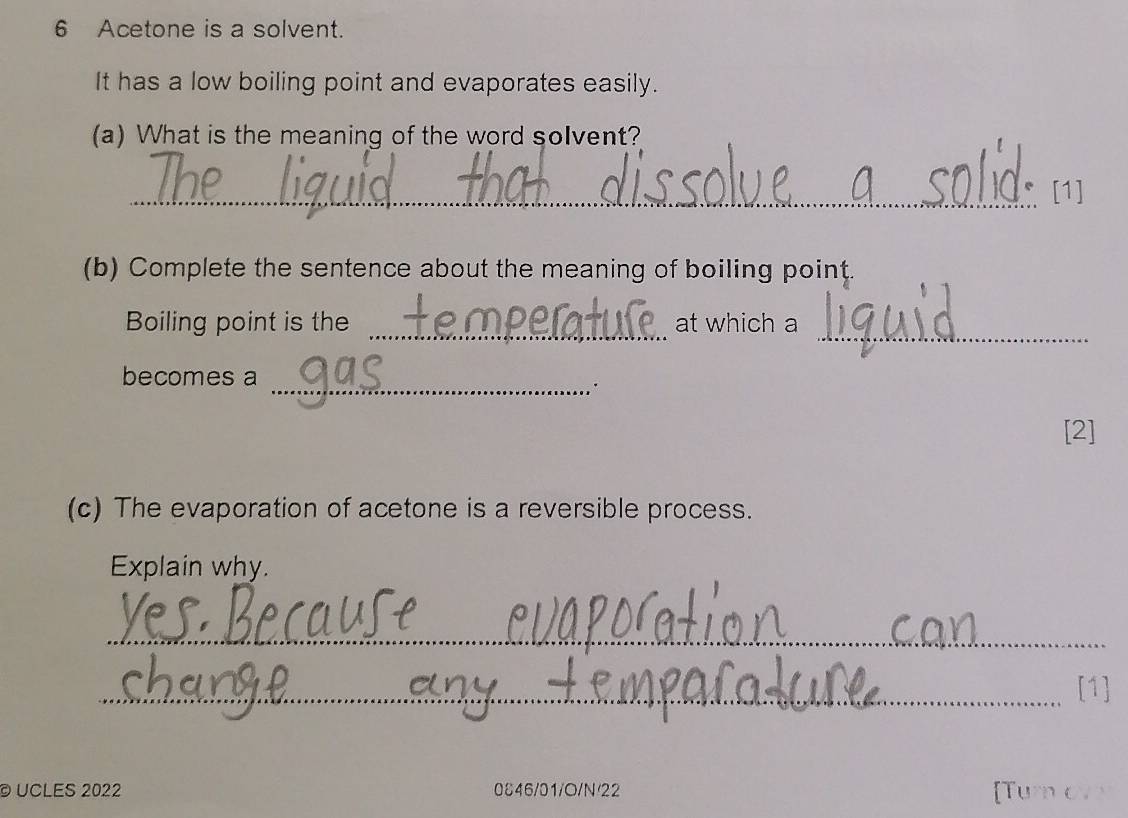 6 Acetone is a solvent.
It has a low boiling point and evaporates easily.
(a) What is the meaning of the word solvent?
The liquid that dissolve a solid. [1]
(b) Complete the sentence about the meaning of boiling point.
Boiling point is the temperature at which a liquid
becomes a gas .
[2]
(c) The evaporation of acetone is a reversible process.
Explain why.
Yes. Because evaporation can
change any temparature. [1]
© UCLES 2022 0846/01/O/N/22 [Turn over